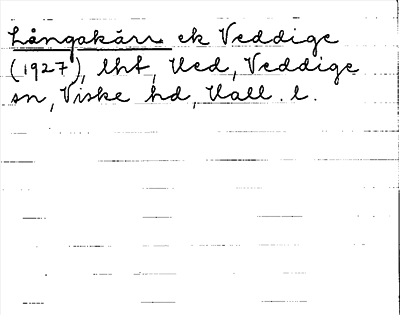 Långakärr ek Veddige
(1927), lht, Ved, Veddige
sn, Viske hd, Hall. l.